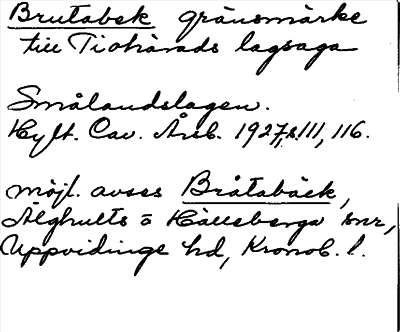 Brutabek gränsmärke
till Tiohärads lagsaga
Smålandslagen.
Hylt. Cav. Årsb. 1927, s. 111, 116.
möjl. avses Bråtabäck,
Älghults o Hälleberga snr,
Uppvidinge hd, Kronob. l.